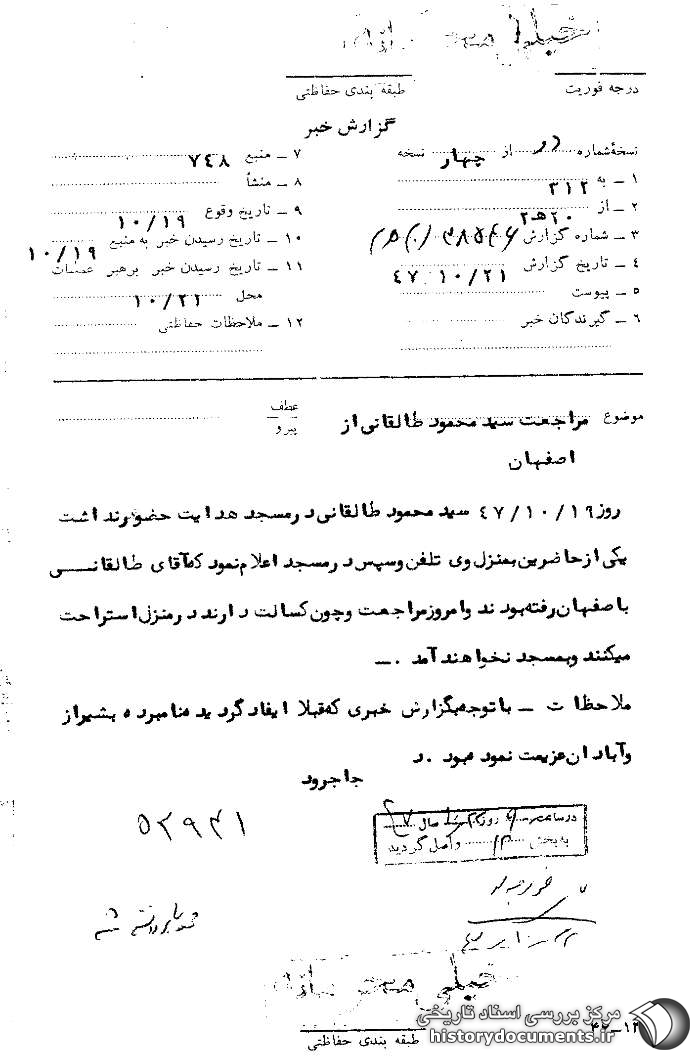 خیلی محرمانه
درجه فوریت
طبقه بندی حفاظتی
گزارش خبر
نسخهٔ شماره دو از چهار نسخه
۱ ــ به ۳۱۲
۲ ــ از ۲۰هـ۲
۳ ــ شماره گزارش
۴ ــ تاریخ گزارش ۴۷/۱۰/۲۱
۵ ــ پیوست
۶ ــ گیرندگان خبر
۷ ــ منبع ۷۴۸
۸ ــ منشأ
۹ ــ تاریخ وقوع ۱۰/۱۹
۱۰ ــ تاریخ رسیدن خبر به منبع ۱۰/۱۹
۱۱ ــ تاریخ رسیدن خبر برهبر عملیات
محل ۱۰/۲۱
۱۲ ــ ملاحظات حفاظتی
موضوع مراجعت سید محمود طالقانی از
اصفهان
عطف
پیرو
روز ۴۷/۱۰/۱۹ سید محمود طالقانی در مسجد هدایت حضور نداشت
یکی از حاضرین بمنزل وی تلفن و سپس در مسجد اعلام نمود که آقای طالقانــی
باصفهان رفته بودند و امروز مراجعت و چون کسالت دارند در منزل استراحت
میکنند و بمسجد نخواهند آمد . ــ
ملاحظات ــ با توجه بگزارش خبری که قبلا ایفاد گردید نامبرده بشیراز
و آبادان عزیمت نموده بود . د
جاجرود
۵۲۹۴۱
در ساعت روز سال ۴۷
به بخش ۱۳ واصل گردید
خیلی محرمانه
طبقه بندی حفاظتی
مرکز بررسی اسناد تاریخی
historydocuments.ir